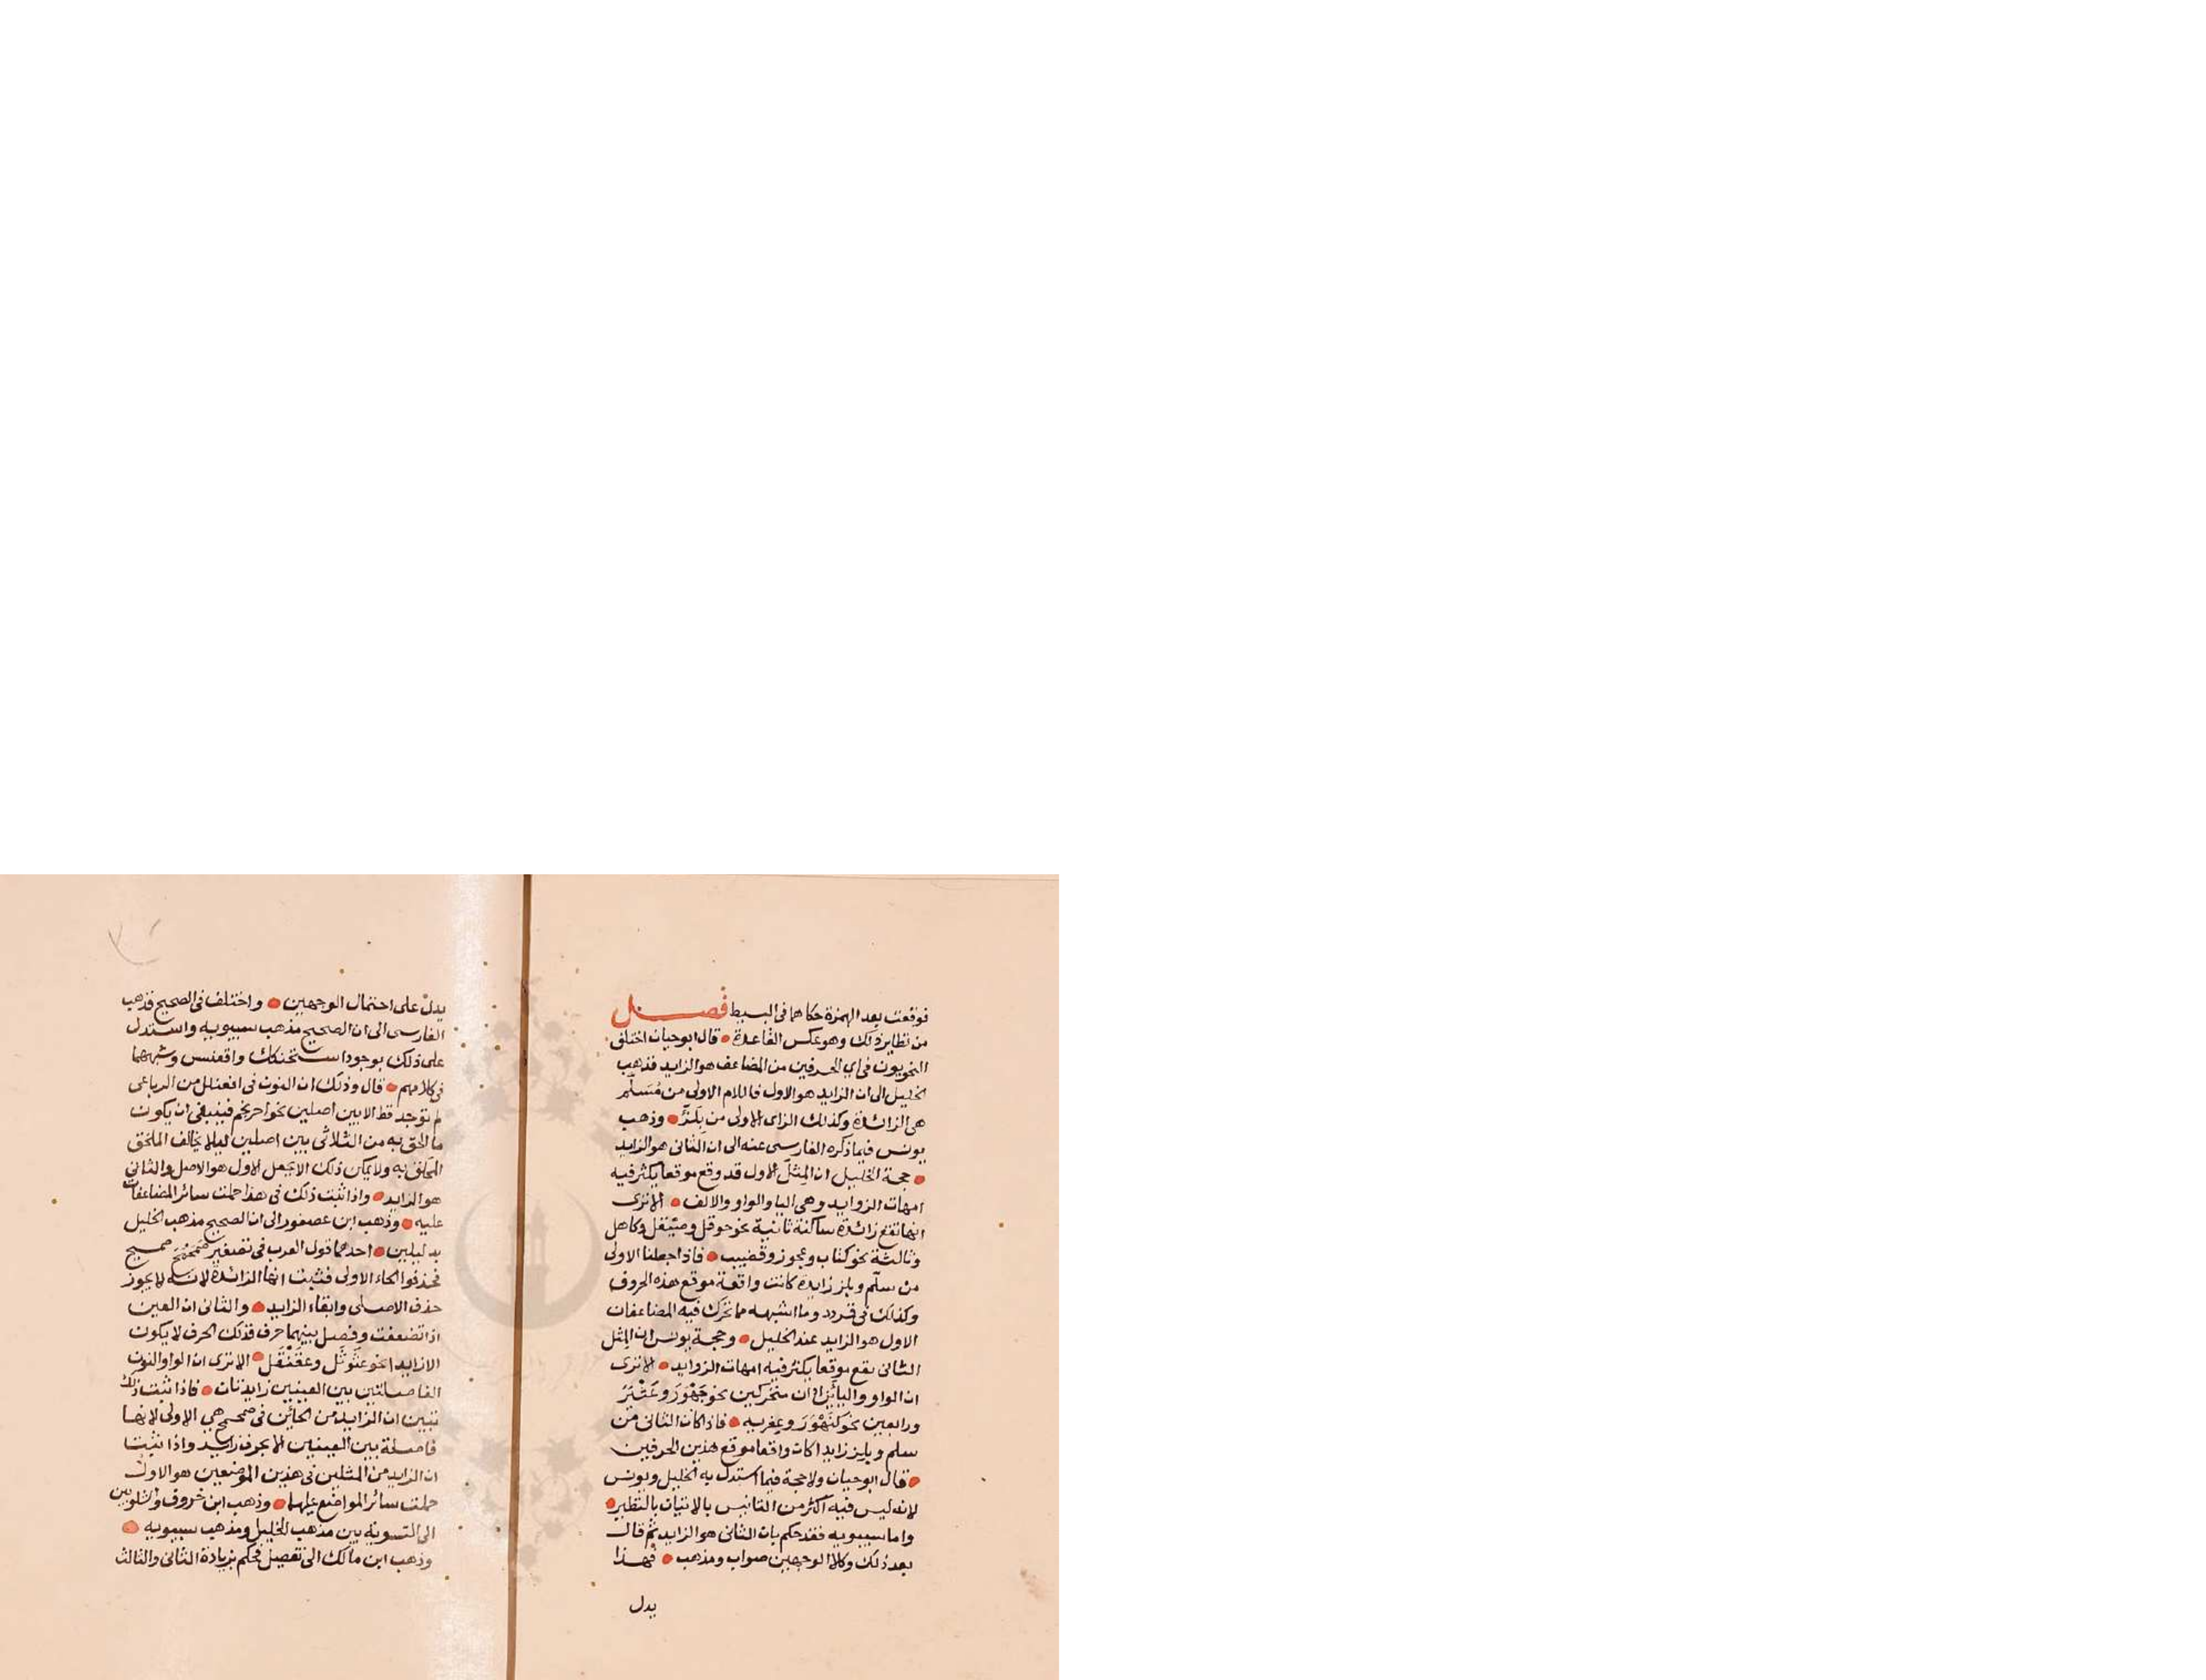 فوقعت بعد الهمزة حكاهما فى البسيط فصل
من نظاير ذلك وهو عكس القاعدة قال ابوحيان اختلف
النحويون فى اي الحرفين من المضاعف هو الزايد فذهب
الخليل الى ان الزايد هو الاول فاللام الاولى من سلّم
هى الزائدة وكذلك الزاى الاولى من بِلزّ وذهب
يونس فيما ذكره الفارسى عنه الى ان الثانى هو الزايد
حجة الخليل ان المِثل الاول قد وقع موقعا يكثر فيه
امهات الزوايد وهى اليا والواو والالف الا ترى
انها تقع زائدة ساكنة ثانية نحو حوقل وصيقل وكاهل
وثالثة نحو كتاب وعجوز وقضيب فاذا جعلنا الاولى
من سلّم وبلز زايدة كانت واقعة موقع هذه الحروف
وكذلك فى قردد وما اشبهه مما تحرك فيه المضاعفات
الاول هو الزايد عند الخليل وحجة يونس ان المِثل
الثانى يقع موقعا يكثر فيه امهات الزوايد الا ترى
ان الواو واليا يُزادان متحركين نحو جَهْوَر وعَثْيَر
ورابعين نحو كَنَهْوَر وعفرية فاذا كان الثانى من
سلم وبلز زايدا كان واقعا موقع هذين الحرفين
قال ابوحيان ولا حجة فيما استدل به الخليل ويونس
لانه ليس فيه اكثر من التانيس بالاتيان بالنظير
واما سيبويه فقد حكم بان الثانى هو الزايد ثم قال
بعد ذلك وكلا الوجهين صواب ومذهب فهذا
يدل
يدل على احتمال الوجهين واختلف فى الصحيح فذهب
الفارسى الى ان الصحيح مذهب سيبويه واستدل
على ذلك بوجود اسحنكك واقعنسس وشبههما
فى كلامهم قال وذلك ان النون فى افعنلل من الرباعى
لم توجد قط الا بين اصلين نحو احرنجم فينبغى ان يكون
ما الحق به من الثلاثى بين اصلين ليلا يخالف الملحق
الملحق به ولا يمكن ذلك الا بجعل الاول هو الاصل والثانى
هو الزايد واذا ثبت ذلك فى هذا حملت سائر المضاعفات
عليه وذهب ابن عصفور الى ان الصحيح مذهب الخليل
بدليلين احدهما قول العرب فى تصغير صَمَحْمَح صميمح
فحذفوا الحاء الاولى فثبت انها الزائدة لانه لا يجوز
حذف الاصلى وابقاء الزايد والثانى ان العين
اذا تضعفت وفصل بينهما حرف فذلك الحرف لا يكون
الا زايدا نحو عَثَوْثَل وعقَنْقَل الا ترى ان الواو والنون
الفاصلتين بين العينين زايدتان فاذا ثبت ذلك
تبين ان الزايد من الحائن فى صمحمح هي الاولى لانها
فاصلة بين العينين الا بحرف زايد واذا ثبت
ان الزايد من المثلين فى هذين الموضعين هو الاول
حملت سائر المواضع عليها وذهب ابن خروف والشلوبين
الى التسوية بين مذهب الخليل ومذهب سيبويه
وذهب ابن مالك الى تفصيل فحكم بزيادة الثانى والثالث